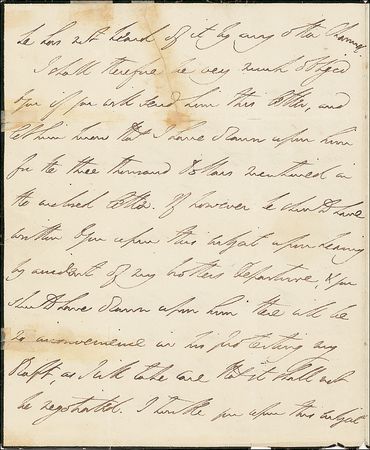 he has not heard of it by any other Channel.
I shall therefore be very much obliged
to you if you will send him this letter, and
let him know that I have drawn upon him
for the three thousand Dollars mentioned in
the enclosed letter. If however he should have
written to you upon this subject upon hearing
by accident of my brothers departure, & you
should have drawn upon him there will be
no inconvenience in his protesting my
Draft, as I will take care that it shall not
be negotiated. I trouble you upon this subject